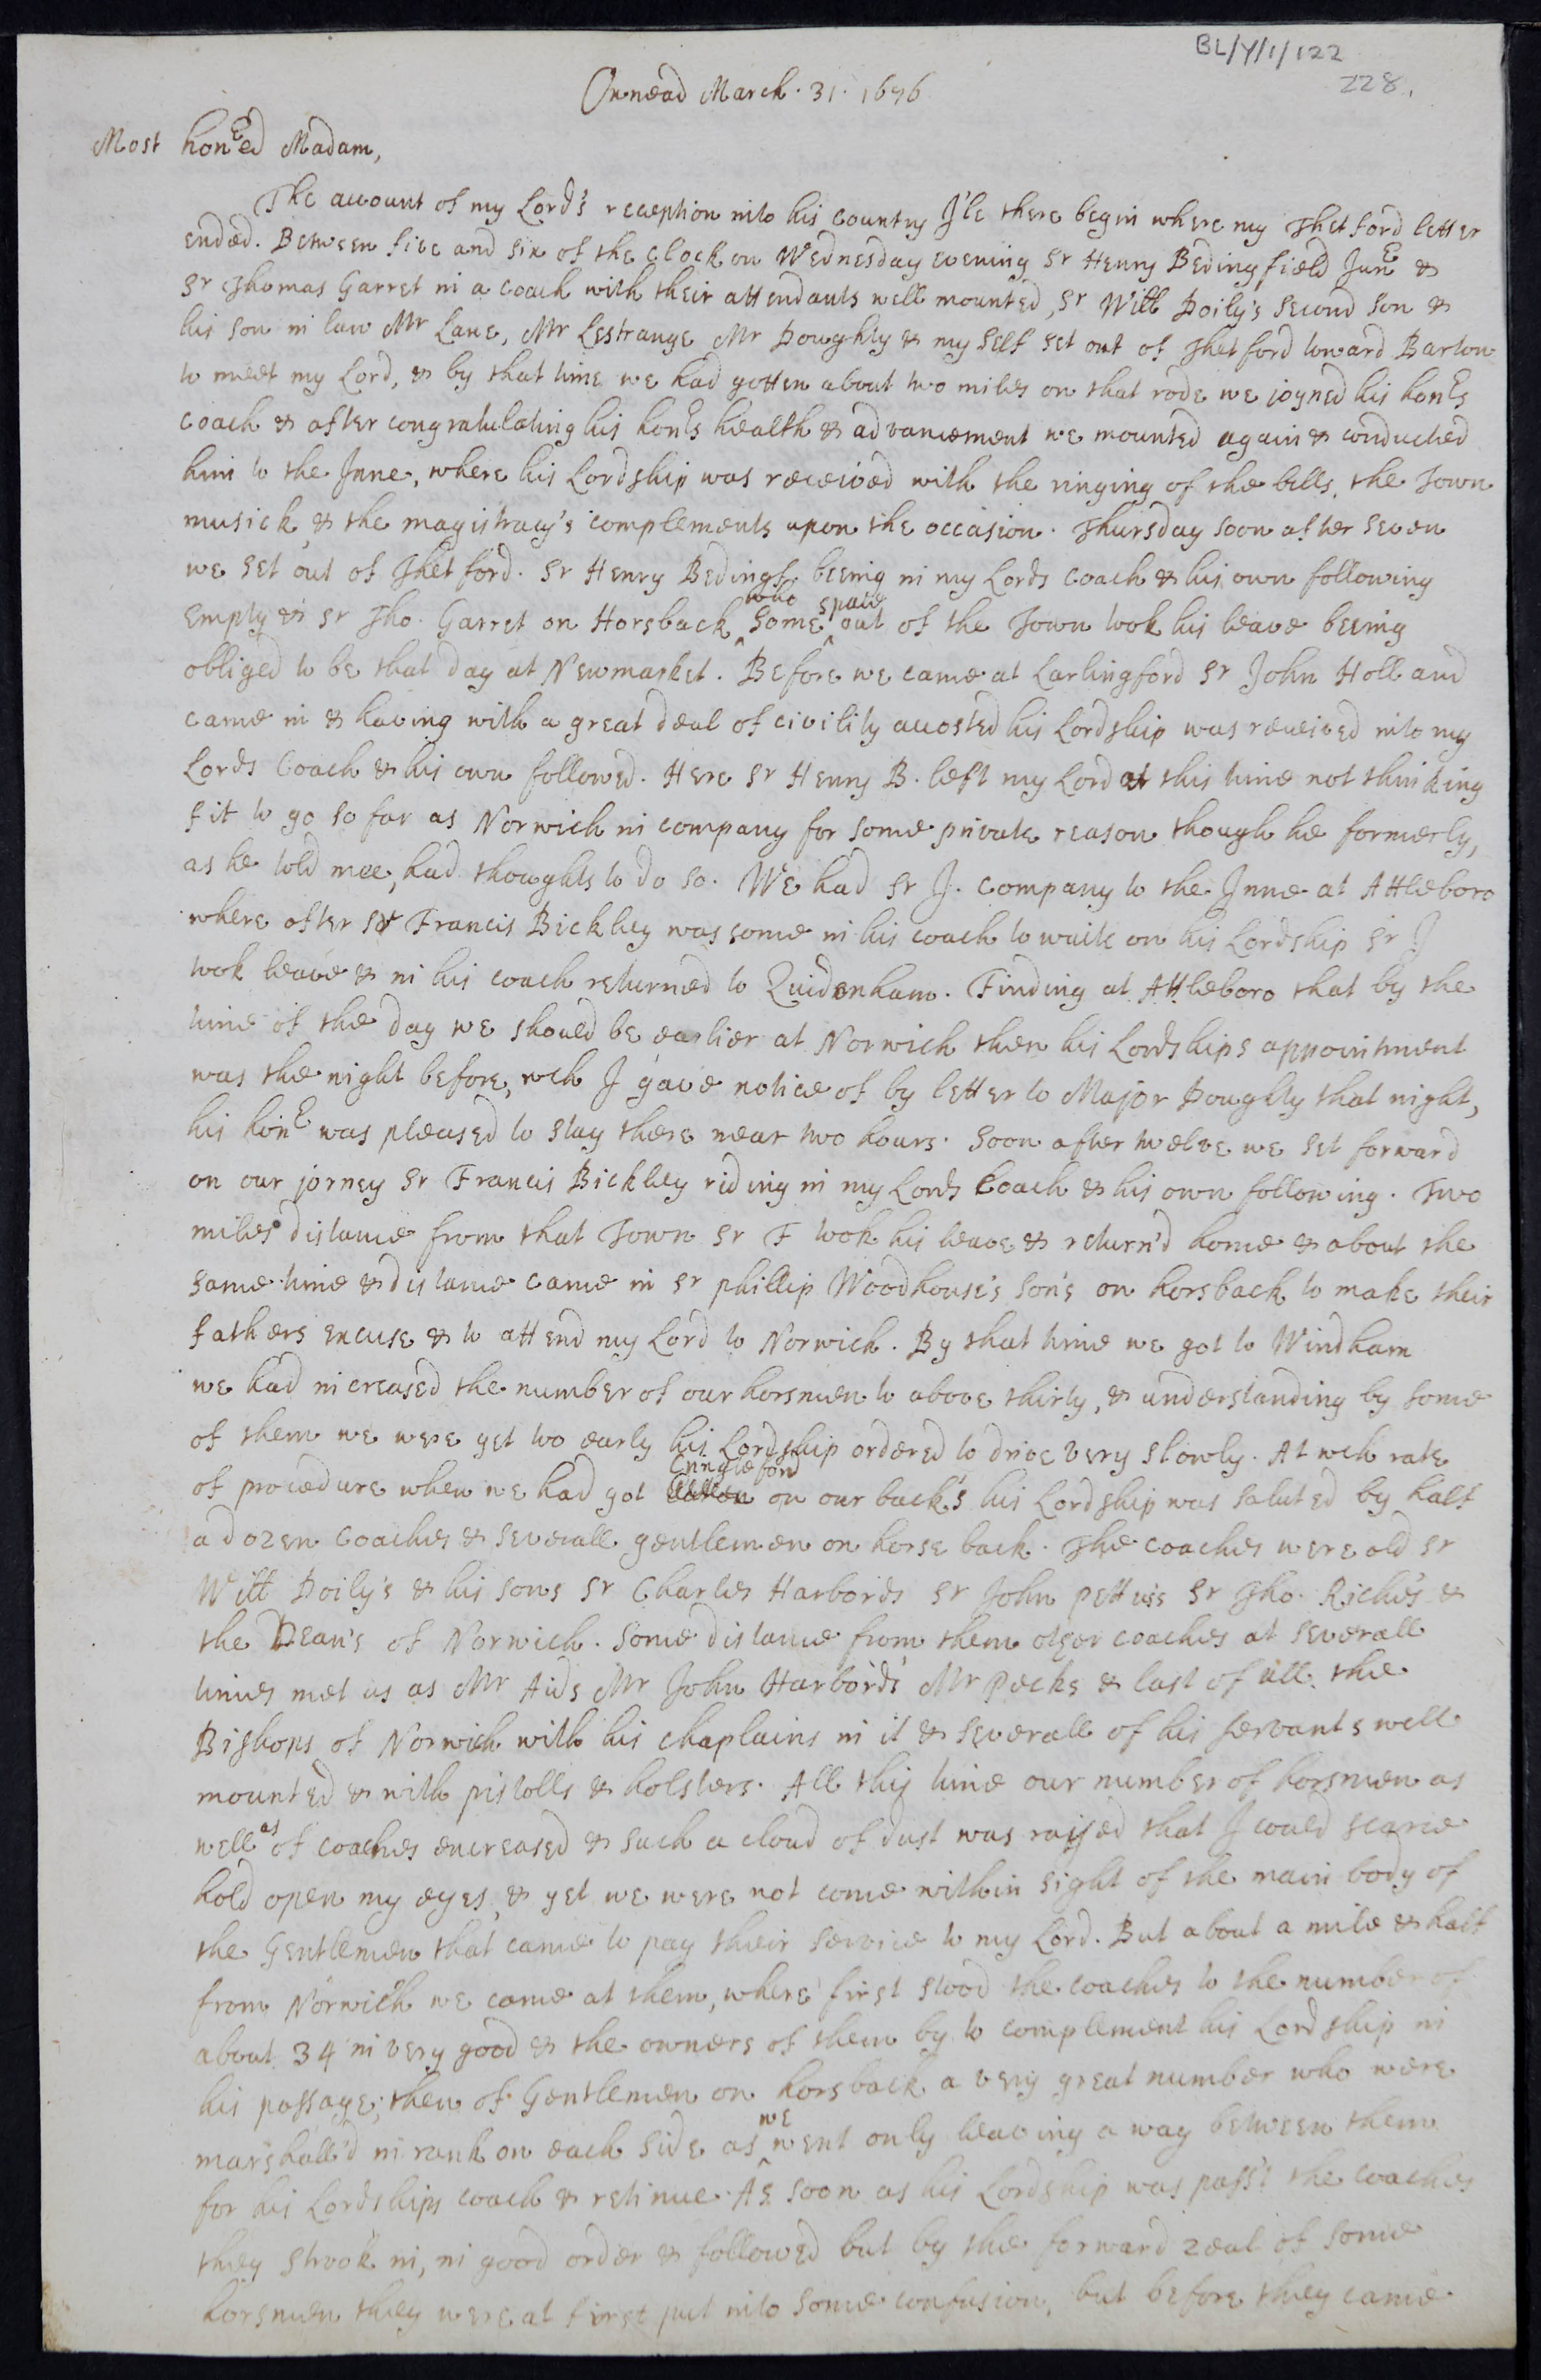 BL/Y/1/122
228.
Oxnead March. 31. 1676
Most honrd Madam,
The account of my Lord's reception into his country I'le there begin where my Thetford letter
ended. Between five and six of the clock on Wednesday evening Sr Henry Bedingfield Junr &
Sr Thomas Garret in a coach with their attendants well mounted, Sr Will Doily's second son &
his son in law Mr Lane, Mr Lestrange Mr Doughty & my self set out of Thetford toward Barton
to meet my Lord, & by that time we had gotten about two miles on that rode we joyned his honrs
coach & after congratulating his honrs health & advancement we mounted again & conducted
him to the Inne, where his Lordship was received with the ringing of the bells, the Town
musick & the magistracy's complements upon the occasion. Thursday soon after seven
we set out of Thetford. Sr Henry Bedingf. beeing in my Lords coach & his own following
empty & Sr Tho. Garret on Horsback who some space out of the Town took his leave beeing
obliged to be that day at Newmarket. Before we came at Larlingford Sr John Holland
came in & having with a great deal of civility accosted his Lordship was received into my
Lords Coach & his own followed. Here Sr Henry B. left my Lord at this time not thinking
fit to go so far as Norwich in company for some private reason though he formerly,
as he told mee, had thoughts to do so. We had Sr J. company to the Inne at Attleboro
where after Sr Francis Bickley was come in his coach to waite on his Lordship Sr J
took leave & in his coach returned to Quidenham. Finding at Attleboro that by the
time of the day we should be earlier at Norwich then his Lordships appointment
was the night before, wch I gave notice of by letter to Major Doughty that night,
his honr was pleased to stay there near two hours. Soon after twelve we set forward
on our jorney Sr Francis Bickley riding in my Lords Coach & his own following. Two
miles distance from that Town Sr F took his leave & return'd home & about the
same time & distance came in Sr Phillip Woodhouse's son's on horsback to make their
fathers excuse & to attend my Lord to Norwich. By that time we got to Windham
we had increased the number of our horsmen to above thirty, & understanding by some
of them we were yet too early his Lordship ordered to drive very slowly. At wch rate
of procedure when we had got Cringleford on our back's his Lordship was saluted by half
a dozen coaches & severall gentlemen on horse back. The coaches were old Sr
Will Doily's & his sons Sr Charles Harbords Sr John Pettus's Sr Tho. Riche's &
the Dean's of Norwich. Some distance from them other coaches at severall
times met us as Mr Aids Mr John Harbord's Mr Pecks & last of all the
Bishops of Norwich with his chaplains in it & severall of his servants well
mounted & with pistolls & holsters. All this time our number of horsmen as
well as of coaches encreased & such a cloud of dust was raysed that I could scarce
hold open my eyes, & yet we were not come within sight of the main body of
the Gentlemen that came to pay their service to my Lord. But about a mile & half
from Norwich we came at them, where first stood the coaches to the number of
about 34 in very good & the owners of them by to complement his Lordship in
his passage; then of Gentlemen on horsback a very great number who were
marshall'd in rank on each side as we went only leaving a way between them
for his Lordships coach & retinue. As soon as his Lordship was pass't the coaches
they strook in, in good order & followed but by the forward zeal of some
horsmen they were at first put into some confusion, but before they came